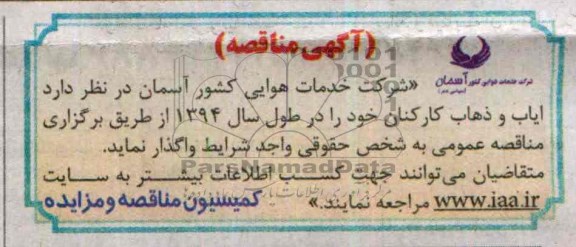 (آگهی مناقصه)
شرکت خدمات هوایی کشور آسمان
(سهامی خاص)
«شرکت خدمات هوایی کشور آسمان در نظر دارد
ایاب و ذهاب کارکنان خود را در طول سال ۱۳۹۴ از طریق برگزاری
مناقصه عمومی به شخص حقوقی واجد شرایط واگذار نماید.
متقاضیان می‌توانند جهت کسب اطلاعات بیشتر به سایت
www.iaa.ir مراجعه نمایند.» کمیسیون مناقصه و مزایده
ParsNamadData